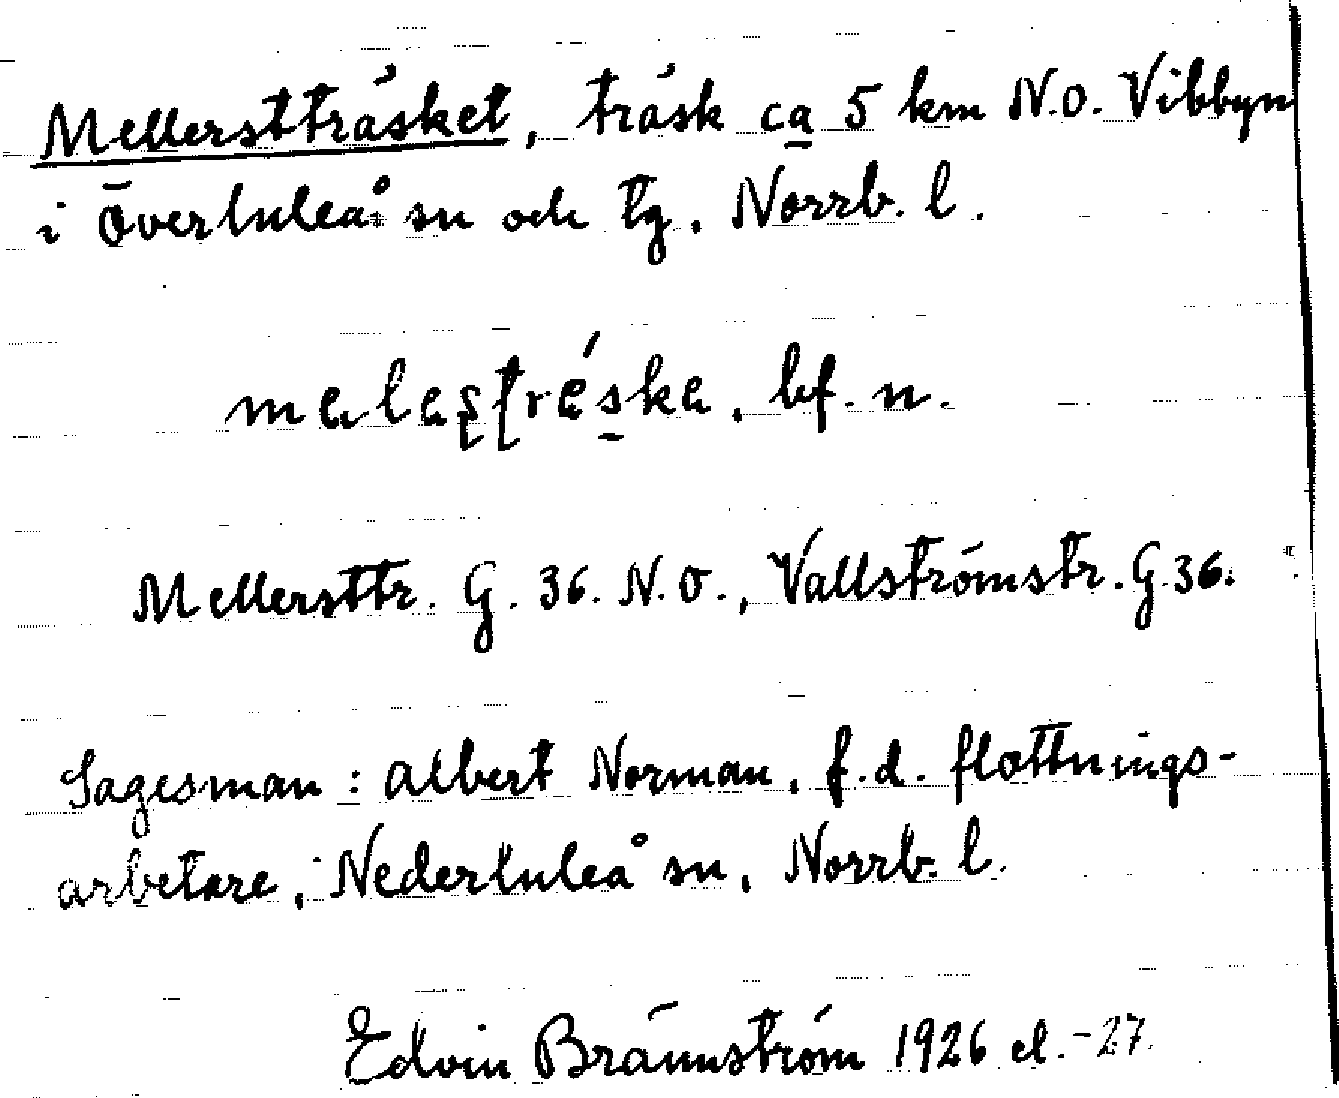 Mellerstträsket, träsk ca 5 km N.O. Vibbyn
i Överluleå sn och tg, Norrb. l.
melestréske, bf. n.
Mellersttr. G. 36. N.O., Vallströmstr. G 36.
Sagesman: Albert Norman, f.d. flottnings-
arbetare, Nederluleå sn, Norrb. l.
Edvin Brännström 1926 el. -27.